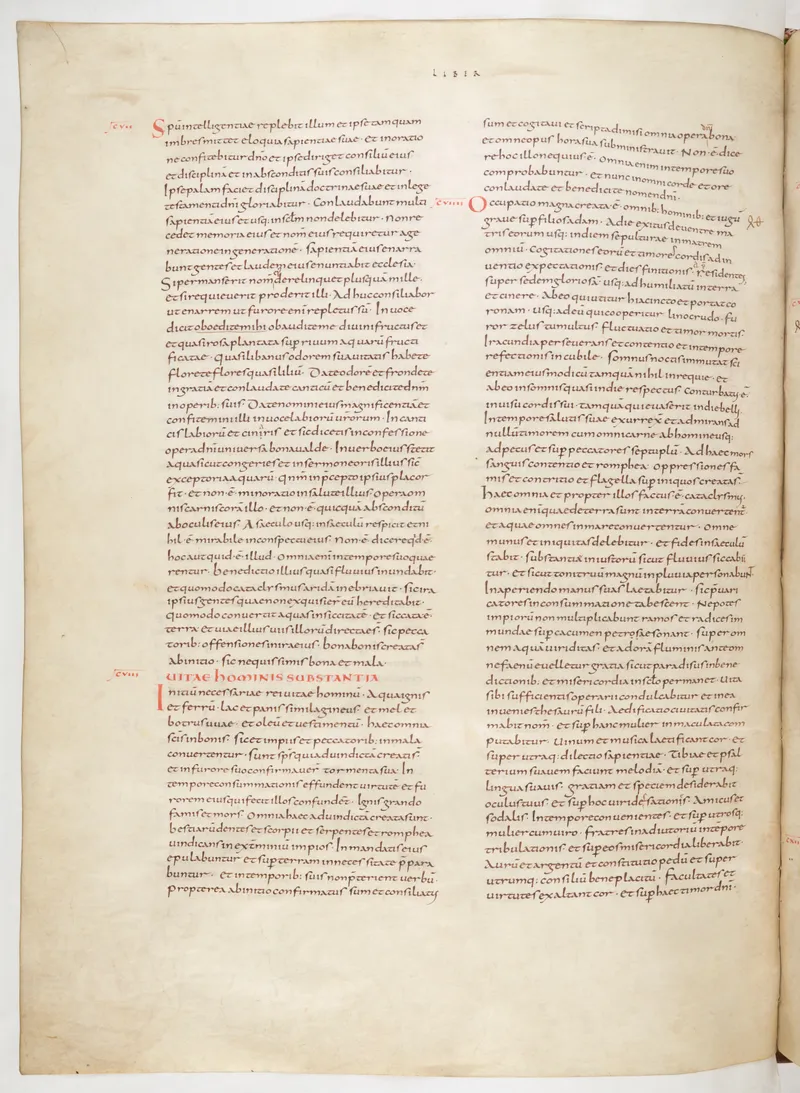 LIBIA
Spū intelligentiae replebit illum et ipse tamquam
imbres mittet eloquia sapientiae suae · et inoratio
ne confitebitur dn̄o et ipse diriget consiliū eius
et disciplinā et inabsconditis suis consiliabitur ·
Ipse palam faciet disciplinā doctrinae suae et inlege
testamenti dn̄i gloriabitur · Conlaudabunt multi
sapientiā eius et usq; insc̄lm non delebitur · Non re
cedet memoria eius et nom̄ eius requiretur age
neratione in generationē · sapientiā eius enarra
bunt gentes et laudem eius enuntiabit ecclesia ·
Si permanserit nom̄ derelinquet plus quā mille ·
et si requieuerit proderit illi · Ad huc consiliabor
ut enarrem ut furore enī repletus sū · In uoce
dicit oboedite mihi obaudite me diuini fructus et
et quasi rosa plantata sup riuum aquarū fructi
ficatae · quasi libanus odorem suauitatis habete
florete flores quasi liliū · Date odorē et frondete
ingratiā et conlaudate canticū et benedicite dn̄m
in operib; suis · Date nomini eius magnificentiā et
confitemini illi in uoce labiorū urorum · In canti
cis labiorū et cinyris et sic dicetis in confessione
opera dn̄i uniuersa bona ualde · In uerbo eius stetit
aqua sicut congeries et in sermone oris illius sic̄
exceptoria aquarū · qn̄m in p̄cepto ipsius placor
fit · et non · ē · minoratio in salute illius opera om
nis carnis corā illo · et non · ē · quicquā absconditū
ab oculis eius · A saeculo usq; in saeculū respicit et ni
hil · ē · mirabile in conspectu eius · Non · ē · dicere qd · ē ·
hoc aut quid · ē · illud · Omnia enī in tempore suo quae
rentur · benedictio illius quasi fluuius inundabit ·
et quomodo cataclysmus aridā inebriauit · sic ira
ipsius gentes quae non exquisier̄ eū hereditabit ·
quomodo conuertit aquas in siccitatē · et siccata · ē ·
terra et uiae illius uiis illorū directae s̄ · sic pecca
torib; offensiones in ira eius · bona bonis creata s̄
ab initio · sic nequissimis bona et mala ·
UITAE hOMINIS SUBSTANTIA
Initiū necessariae rei uitae hominū · Aqua ignis
et ferrū · lac et panis similagineus · et mel et
botrus uuae · et oleū et uestimentū · haec omnia
sc̄is in bonis · sic et impiis et peccatorib; in mala
conuertentur · sunt sp̄s qui ad uindictā creati s̄
et in furore suo confirmauer̄ tormenta sua · In
tempore consummationis effundent uirtutē et fu
rorem eius qui fecit illos confundent · Ignis grando
famis et mors · Omnia haec ad uindictā creata sunt ·
bestiarū dentes et scorpii et serpentes et romphea
uindicans in exterminiū impios · In mandatis eius
epulabuntur et sup terram in necessitate p̄para
buntur · et in temporib; suis non p̄terient uerbū ·
propterea ab initio confirmatus sum et consiliatus
sum et cogitaui et scripta dimisi omnia opera dn̄i bona
et omne opus hora sua subministrauit · Non · ē · dice
re hoc illo nequius · ē · omnia enim in tempore suo
comprobabuntur · et nunc in omni corde et ore
conlaudate et benedicite nomen dn̄i ·
Occupatio magna creata · ē · omnib; hominib; et iugū
graue sup filios adam · A die exitus de uentre ma
tris eorum usq; in diem sepulturae in matrem
omniū · Cogitationes eorū et timores cordis ad in
uentio expectationis · et dies finitionis · residentes
super sedem gloriosā · usq; ad humiliatū in terra
et cinere · Ab eo qui utitur hiacincto et portat co
ronam · usq; ad eū qui cooperitur lino crudo · fu
ror zelus tumultus · fluctuatio et timor mortis
Iracundia perseuerans et contentio et in tempore
refectionis in cubile · somnus noctis immutat sci
entiam eius modicū tamquā nihil in requie · et
ab eo in somnis quasi in die respectus · Conturbatus · ē ·
in uisu cordis sui · tamquā qui euaserit in die belli
In tempore salutis suae exurrex̄ et admirans ad
nullū timorem cum omni carne ab homine usq;
ad pecus et sup peccatores septuplū · Ad haec mors
sanguis contentio et romphea · oppressiones fa
mis et contritio et flagella sup iniquos creata s̄ ·
haec omnia et propter illos factus · ē · cataclysmus ·
omnia enī quae de terra sunt in terrā conuertent̄
et aquae omnes in mare conuertentur · Omne
munus et iniquitas delebitur · et fides in saeculū
stabit · substantiā iniustorū sicut fluuius siccabi
tur · et sicut tonitruū magnū in pluuia personabunt
In aperiendo manus suas laetabitur · sic p̄uari
catores in consummatione tabescent · Nepotes
impiorū non multiplicabunt ramos et radices im
mundae sup cacumen petrae sonant · super om
nem aquā uiriditas · et ad orā fluminis ante om
ne faenū euelletur gratia sicut paradisus in bene
dictionib; et misericordia in sc̄lo permanet · Uita
sibi sufficientis operarii condulcabitur et in ea
inuenies thesaurū fili · Aedificatio ciuitatis confir
mabit nom̄ · et sup hanc mulier inmaculata com
putabitur · Uinum et musica laetificant cor · et
super utraq; dilectio sapientiae · Tibiae et psal
terium suauem faciunt melodiā · et sup utraq;
lingua suauis · gratiam et speciem desiderabit
oculus tuus · et sup hoc uiride sationis · Amicus et
sodalis · In tempore conuenientes · et sup utrosq;
mulier cum uiro · fratres in adiutoriū in tēpore
tribulationis · et sup eos misericordia liberabit ·
Aurū et argentū et constitutio pedū et super
utrumq; consiliū beneplacitū · facultates et
uirtutes exaltant cor · et sup haec timor dn̄i ·